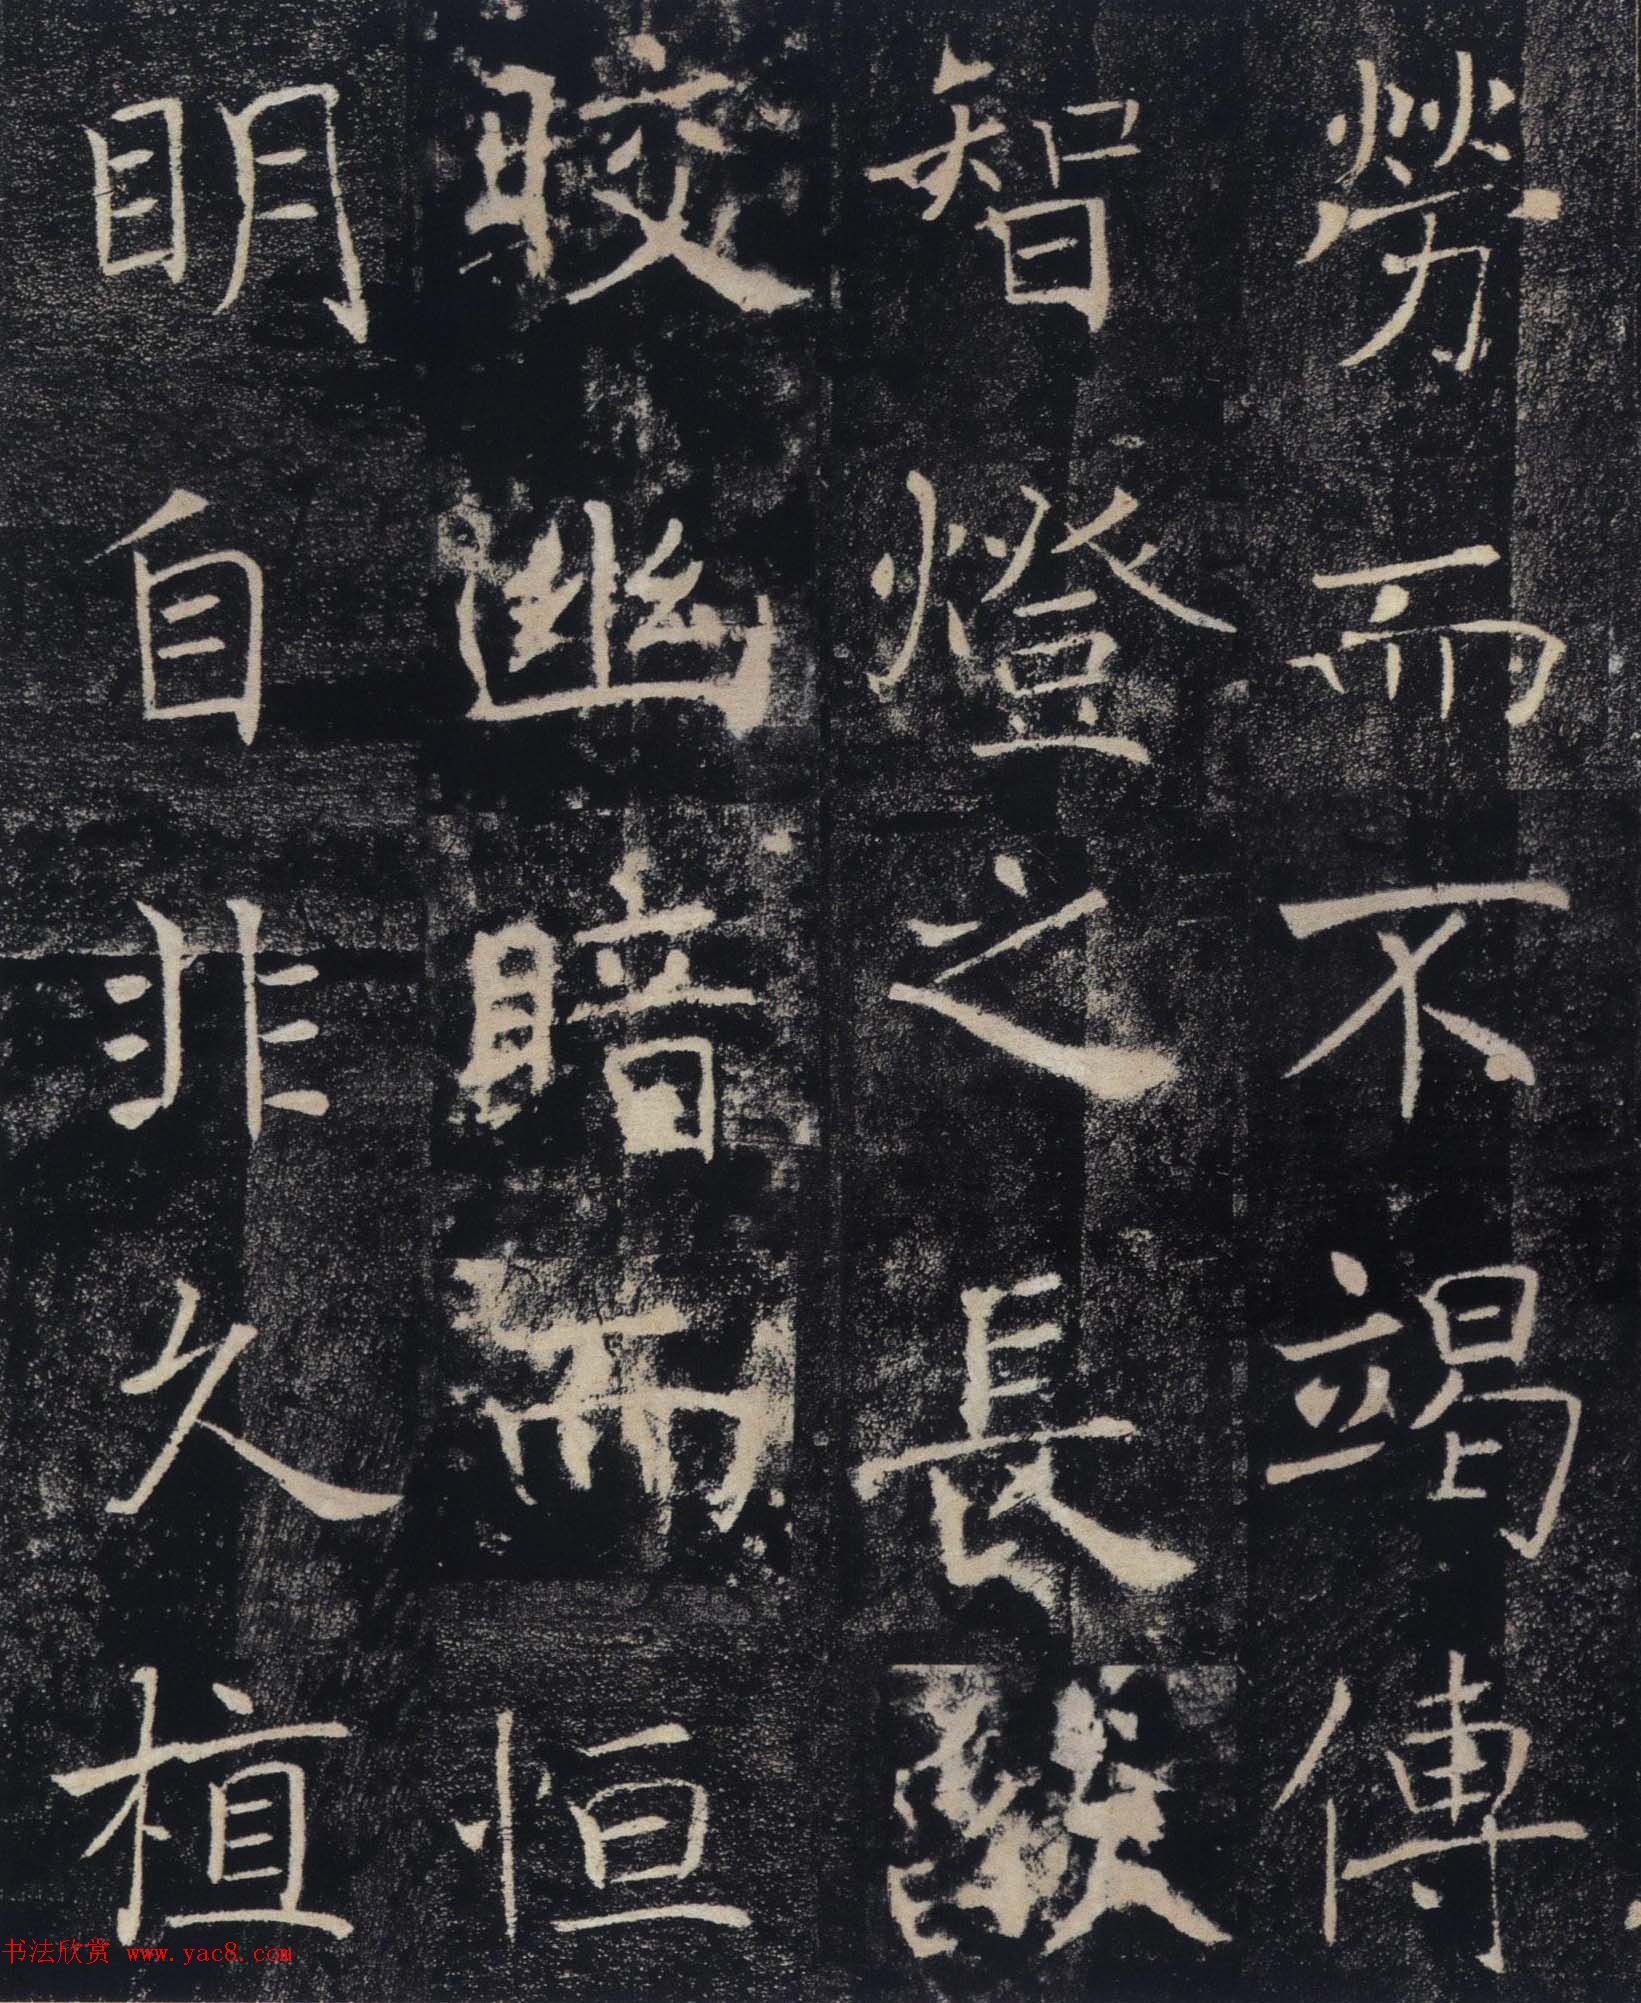 勞而不竭傳
智燈之長燄
皎幽暗而恒
明自非久植
书法欣赏 www.yac8.com